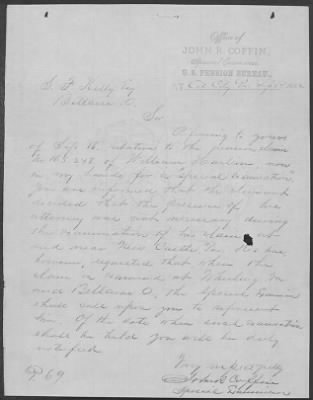 Office of
JOHN R. COFFIN,
Special Examiner
U. S. PENSION BUREAU,
At Oil City Pa.
S. F. Kelly Esq
Bellaire O.
Sir
Referring to yours
of relative to the pension claim
No of William now
in my hands for a "Special Examination"
You are informed that the claimant
decided that the presence of his
attorney was not necessary during
the examination of his claim at
and near New Castle Pa. He has
however, requested that when the
claim is examined at Wheeling
and Bellaire O, the Special Examiner
shall call upon you to represent
him. Of the date when such examination
shall be held you will be duly
notified.
Very respectfully
John R Coffin
Special Examiner
69